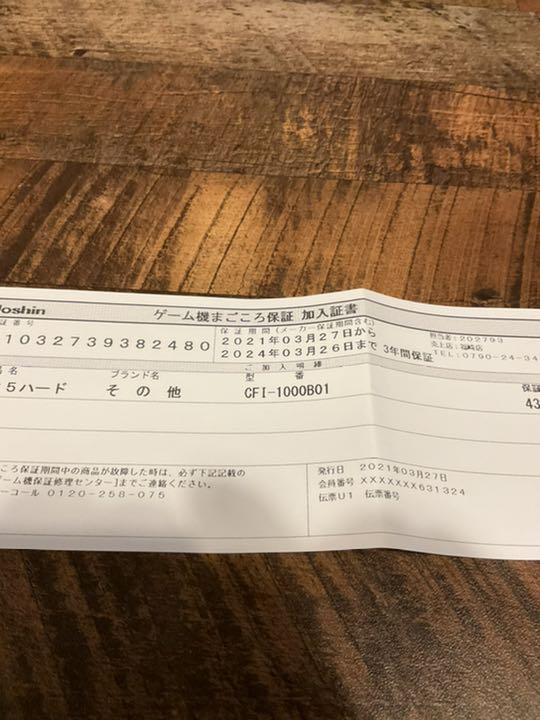 Joshin ゲーム機まごころ保証 加入証書
証番号
1032739382480
保証期間(メーカー保証期間含む)
2021年03月27日から
2024年03月26日まで 3年間保証
担当者:202793
売上店:
TEL:0790-24-34
名 ブランド名
ご加入明細
型番
保証
5ハード その他 CFI-1000B01 43
ころ保証期間中の商品が故障した時は、必ず下記記載の
ーム機保証修理センター]までご連絡ください。
ーコール 0120-258-075
発行日 2021年03月27日
会員番号 XXXXXXX631324
伝票U1 伝票番号